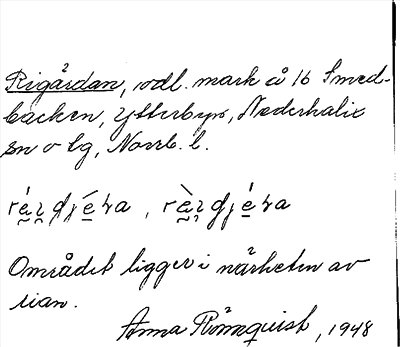 Rigårdan, odl. mark å 16 Smed-
backen, Ytterbyn, Nederkalix
sn o tg, Norrb. l.
Området ligger i närheten av
lian.
Anna Rönnquist, 1948